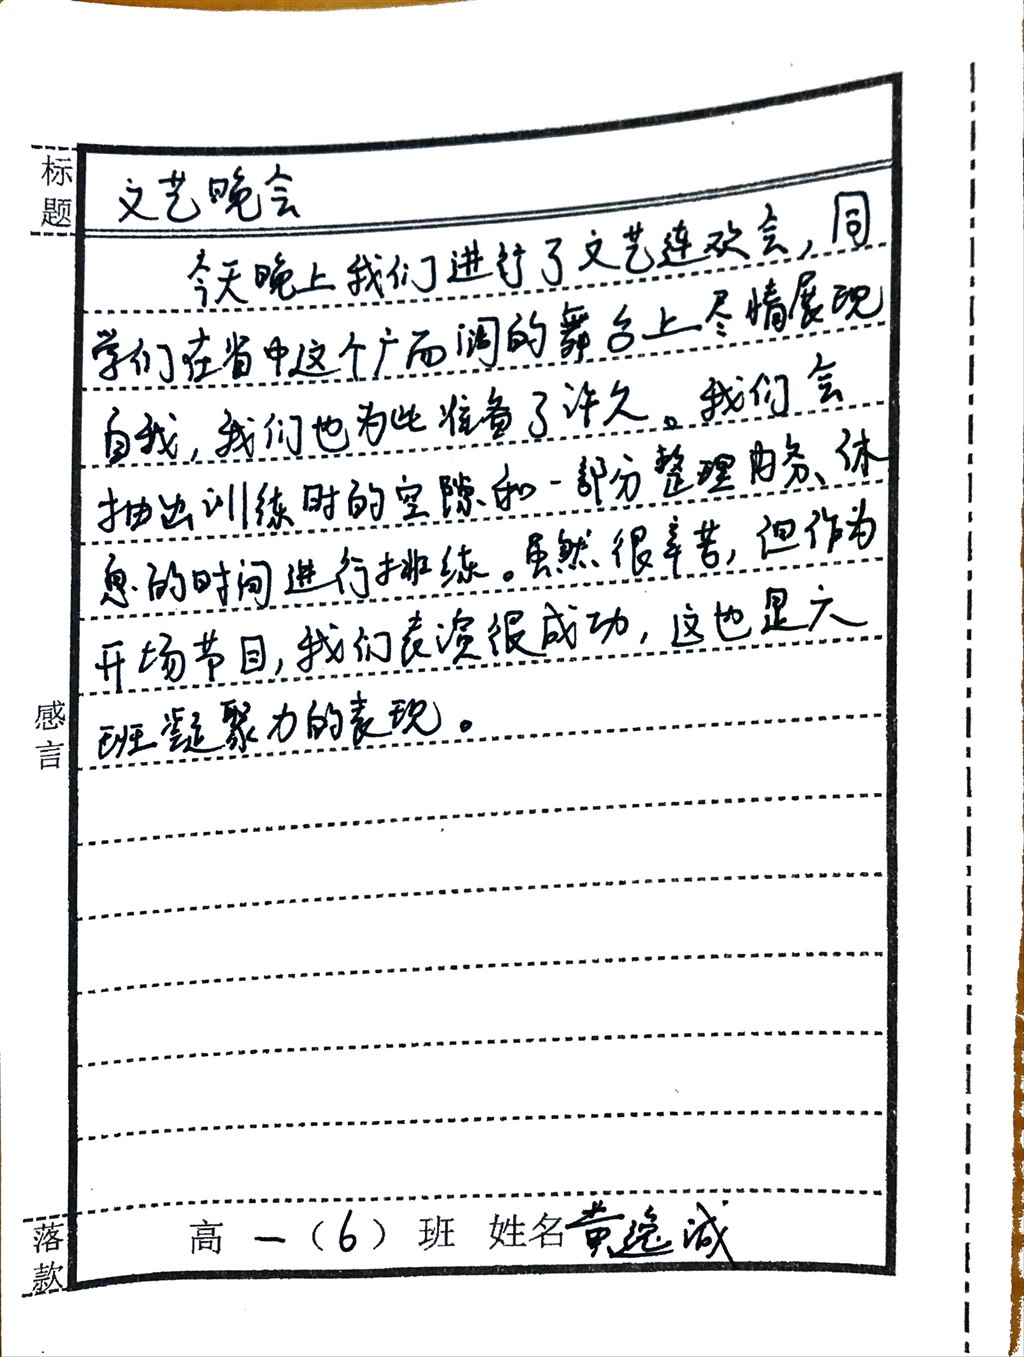 标题
文艺晚会
今天晚上我们进行了文艺连欢会，同
学们在省中这个广而阔的舞台上尽情展现
自我，我们也为此准备了许久。我们会
抽出训练时的空隙和一部分整理内务、休
息的时间进行排练。虽然很辛苦，但作为
开场节目，我们表演很成功，这也是六
班凝聚力的表现。
感言
落款
高一（6）班 姓名黄逸诚